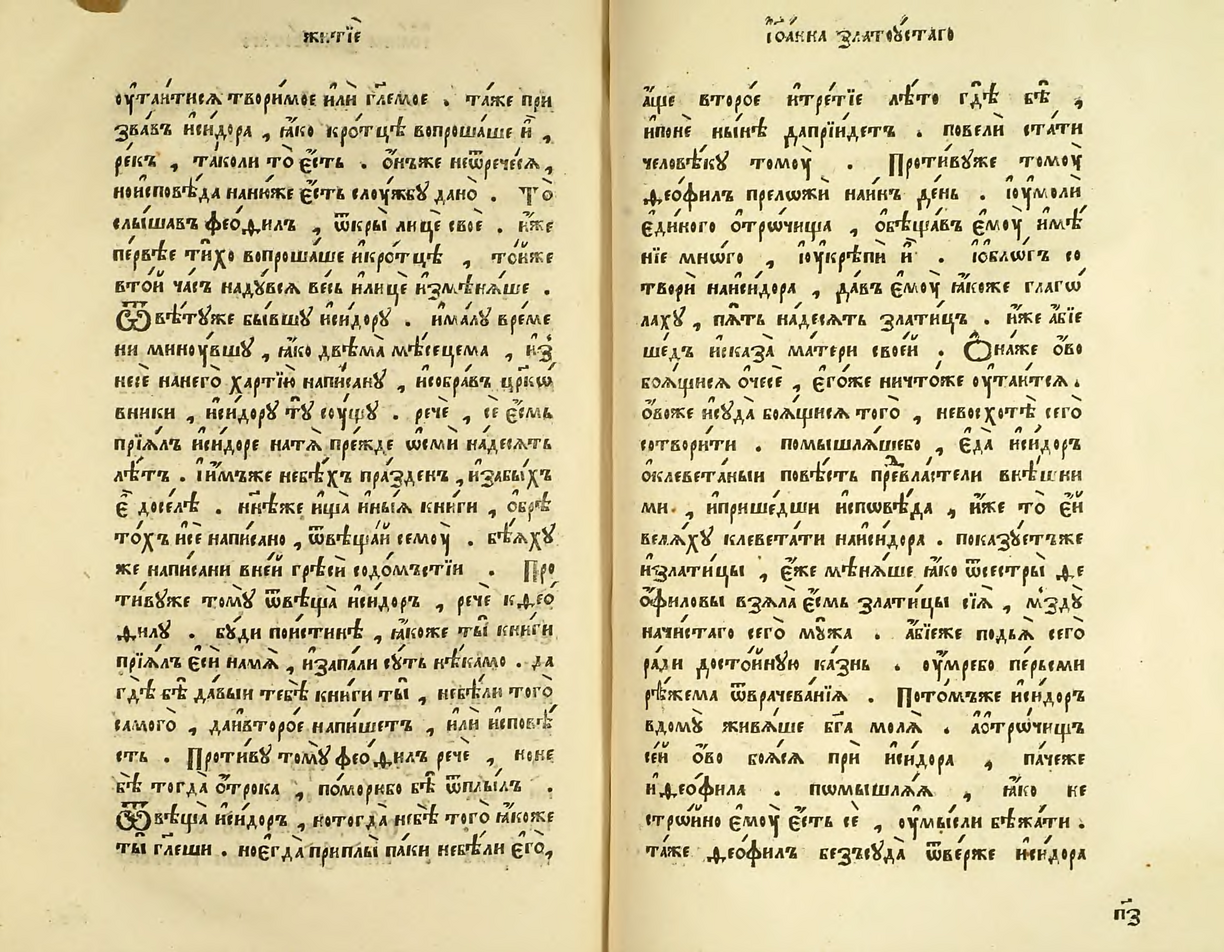 житїѐ
ѹ҆таи́тисѧ твори́мое и҆лѝ гл҃емое . та́же при
зва́въ и҆си́дора , ꙗ҆́ко кро́тцѣ вопроша́ше и҆̀ ,
ре́къ , та́коли то̀ е҆́сть . ѻ҆́нъже неѿрече́сѧ ,
ноисповѣ́да нани́же е҆́сть слꙋ́жбꙋ дано̀ . То̀
слы́шавъ фео́ѳилъ , ѿкры̀ лицѐ своѐ . и҆́же
пе́рвѣе ти́хо вопроша́ше икро́тцѣ , то́йже
вто́й ча́съ надꙋ́всѧ ве́сь илицѐ и҆змѣнѧ́ше .
Ѿвѣ́тꙋже бы́вшꙋ и҆си́дорꙋ . и҆ма́лꙋ вре́ме
ни минꙋ́вшꙋ , ꙗ҆́ко двѣма̀ мѣ́сецема , и҆з̾
несѐ нанего̀ харті́ю напи́санꙋ , исобра́въ цр҃ко́
вники , и҆си́дорꙋ тꙋ̀ сꙋ́щꙋ . речѐ , сѐ е҆́смь
прїѧ́лъ и҆си́доре натѧ̀ пре́жде ѡ҆смѝ на́десѧть
лѣ́тъ . ї҆и́мъже небѣ́хъ пра́зденъ , и҆забы́хъ
є҆̀ досе́лѣ . нн҃ѣже и҆ща̀ и҆ны́ѧ кни́ги , ѻ҆брѣ́
то́хъ и҆сѐ напи́сано , ѿвѣща́й семꙋ̀ . бѣ́ѧхꙋ
же напи́сани вне́й грѣсѝ содо́мъстїи . Про
ти́вꙋже томꙋ̀ ѿвѣща̀ и҆си́доръ , речѐ кѳео́
ѳилꙋ . бꙋ́ди пои́стинѣ , ꙗ҆́коже ты̀ кни́ги
прїѧ́лъ є҆сѝ намѧ̀ , и҆запа́ли сꙋ́ть нѣ́камо . да
гдѣ̀ бѣ̀ да́выи тебѣ̀ кни́ги ты̀ , небѣ́ли того̀
самого̀ , даивторо́е напи́шетъ , и҆лѝ исповѣ́
сть . Проти́вꙋ томꙋ̀ фео́ѳилъ речѐ , ноне
бѣ̀ тогда̀ ѻ҆́трока , помо́рибо бѣ̀ ѿплы́лъ .
Ѿвѣща̀ и҆си́доръ , нотогда̀ небѣ̀ того̀ ꙗ҆́коже
ты̀ гл҃еши . ноє҆гда̀ приплы̀ па́ки небѣ́ли є҆го̀ ,
ї҆ѻа́нна златоꙋ́стаго
а҆́ще второ́е и҆тре́тїе лѣ́то гдѣ̀ бѣ̀ ,
и҆понѐ ны́нѣ даприи́детъ . повелѝ ста́ти
человѣ́кꙋ томꙋ̀ . Проти́вꙋже томꙋ̀
ѳео́филъ преложѝ наи́нъ де́нь . ї҆ꙋмолѝ
є҆ди́ного ѻ҆троčища , ѻ҆бѣща́въ є҆мꙋ̀ и҆мѣ́
нїе мно́го , ї҆ꙋкрѣпѝ и҆̀ . ї҆ѻбло́гъ со
творѝ наиси́дора , да́въ є҆мꙋ̀ ꙗ҆́коже глаго́
лахꙋ , пѧ́ть на́десѧть злати́цъ . и҆́же а҆́бїе
ше́дъ и҆сказа̀ ма́тери свое́й . Ѻ҆на́же ѻ҆́во
боѧ́щисѧ ѻ҆чесѐ , є҆го́же ничто́же ѹ҆таи́тсѧ .
ѻ҆́воже и҆сꙋда̀ боѧ́щисѧ того̀ , невосхотѣ̀ сего̀
сотвори́ти . помышлѧ́шебо , є҆да̀ и҆си́доръ
ѻ҆клевета́ныи повѣ́сть пре́двластели внѣ́шни
ми . , и҆прише́дши и҆сповѣ́да , и҆́же то̀ є҆́й
велѧ́хꙋ клевета́ти наиси́дора . пока́зꙋетъже
и҆злати́цы , є҆́же мѣнѧ́ше ꙗ҆́ко ѿсестры̀ ѳе
ѻ҆́филовы взѧ́ла є҆́смь злати́цы сїѧ̀ , м̾здꙋ̀
начи́стаго сего̀ мꙋ́жа . а҆́бїеже подьѧ̀ сего̀
ра́ди досто́йнꙋю ка́знь . ѹ҆́мребо пе́рьсми
рѣ́жема ѿврачева́нїѧ . Пото́мъже и҆си́доръ
вдомꙋ̀ живѧ́ше бг҃а молѧ̀ . а҆ѻтро́чищъ
се́й ѻ҆́во боѧ́сѧ при и҆си́дора , па́чеже
и҆ѳео́фила . помышлѧ́ѧ , ꙗ҆́ко не
стро́йно є҆мꙋ̀ е҆́сть сѐ , ѹ҆мы́сли бѣжа́ти .
та́же ѳео́филъ безъсꙋда̀ ѿве́рже и҆си́дора
п҃з